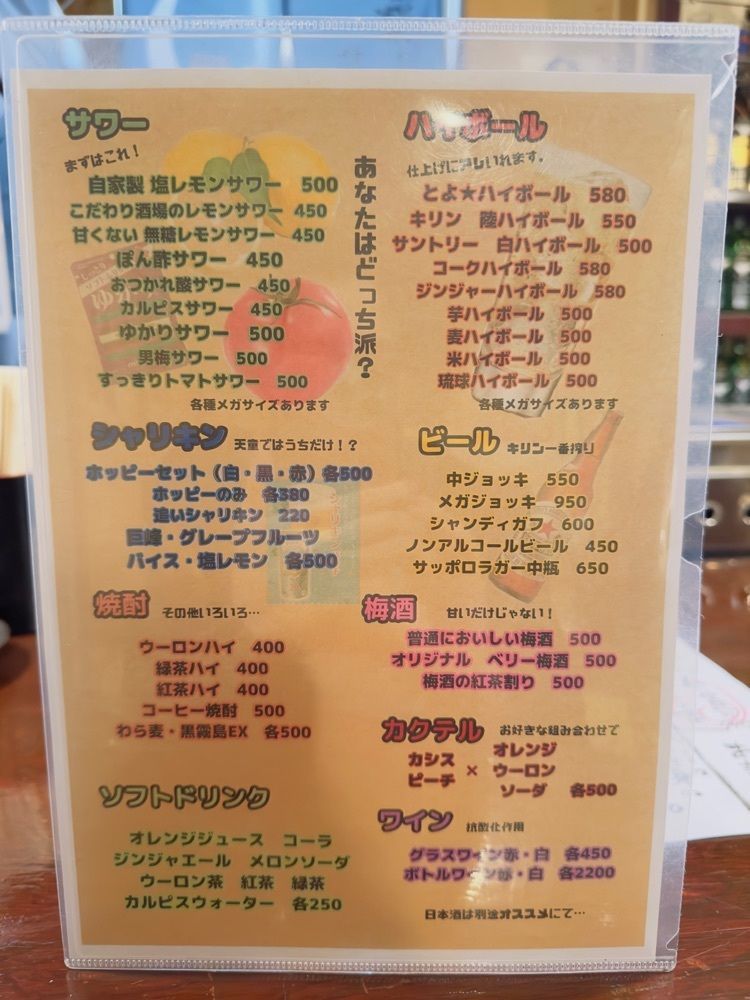 サワー
まずはこれ！
自家製 塩レモンサワー 500
こだわり酒場のレモンサワー 450
甘くない 無糖レモンサワー 450
ぽん酢サワー 450
おつかれ酸サワー 450
カルピスサワー 450
ゆかりサワー 500
男梅サワー 500
すっきりトマトサワー 500
各種メガサイズあります
あなたはどっち派？
ハイボール
仕上げに押しいれます。
とよ★ハイボール 580
キリン 陸ハイボール 550
サントリー 白ハイボール 500
コークハイボール 580
ジンジャーハイボール 580
芋ハイボール 500
麦ハイボール 500
米ハイボール 500
琉球ハイボール 500
各種メガサイズあります
シャリキン 天童ではうちだけ！？
ホッピーセット（白・黒・赤）各500
ホッピーのみ 各380
追いシャリキン 220
巨峰・グレープフルーツ
バイス・塩レモン 各500
ビール キリン一番搾り
中ジョッキ 550
メガジョッキ 950
シャンディガフ 600
ノンアルコールビール 450
サッポロラガー中瓶 650
焼酎 その他いろいろ…
ウーロンハイ 400
緑茶ハイ 400
紅茶ハイ 400
コーヒー焼酎 500
わら麦・黒霧島EX 各500
梅酒 甘いだけじゃない！
普通においしい梅酒 500
オリジナル ベリー梅酒 500
梅酒の紅茶割り 500
カクテル お好きな組み合わせで
カシス
ピーチ
×
オレンジ
ウーロン
ソーダ 各500
ソフトドリンク
オレンジジュース コーラ
ジンジャエール メロンソーダ
ウーロン茶 紅茶 緑茶
カルピスウォーター 各250
ワイン 抗酸化作用
グラスワイン赤・白 各450
ボトルワイン赤・白 各2200
日本酒は別途オススメにて…